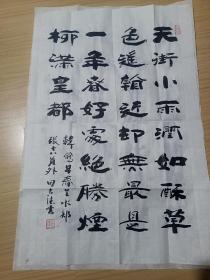 天街小雨潤如酥草
色遥看近却無最是
一年春好處絕勝煙
柳滿皇都
韓愈早春呈水部
張十八員外